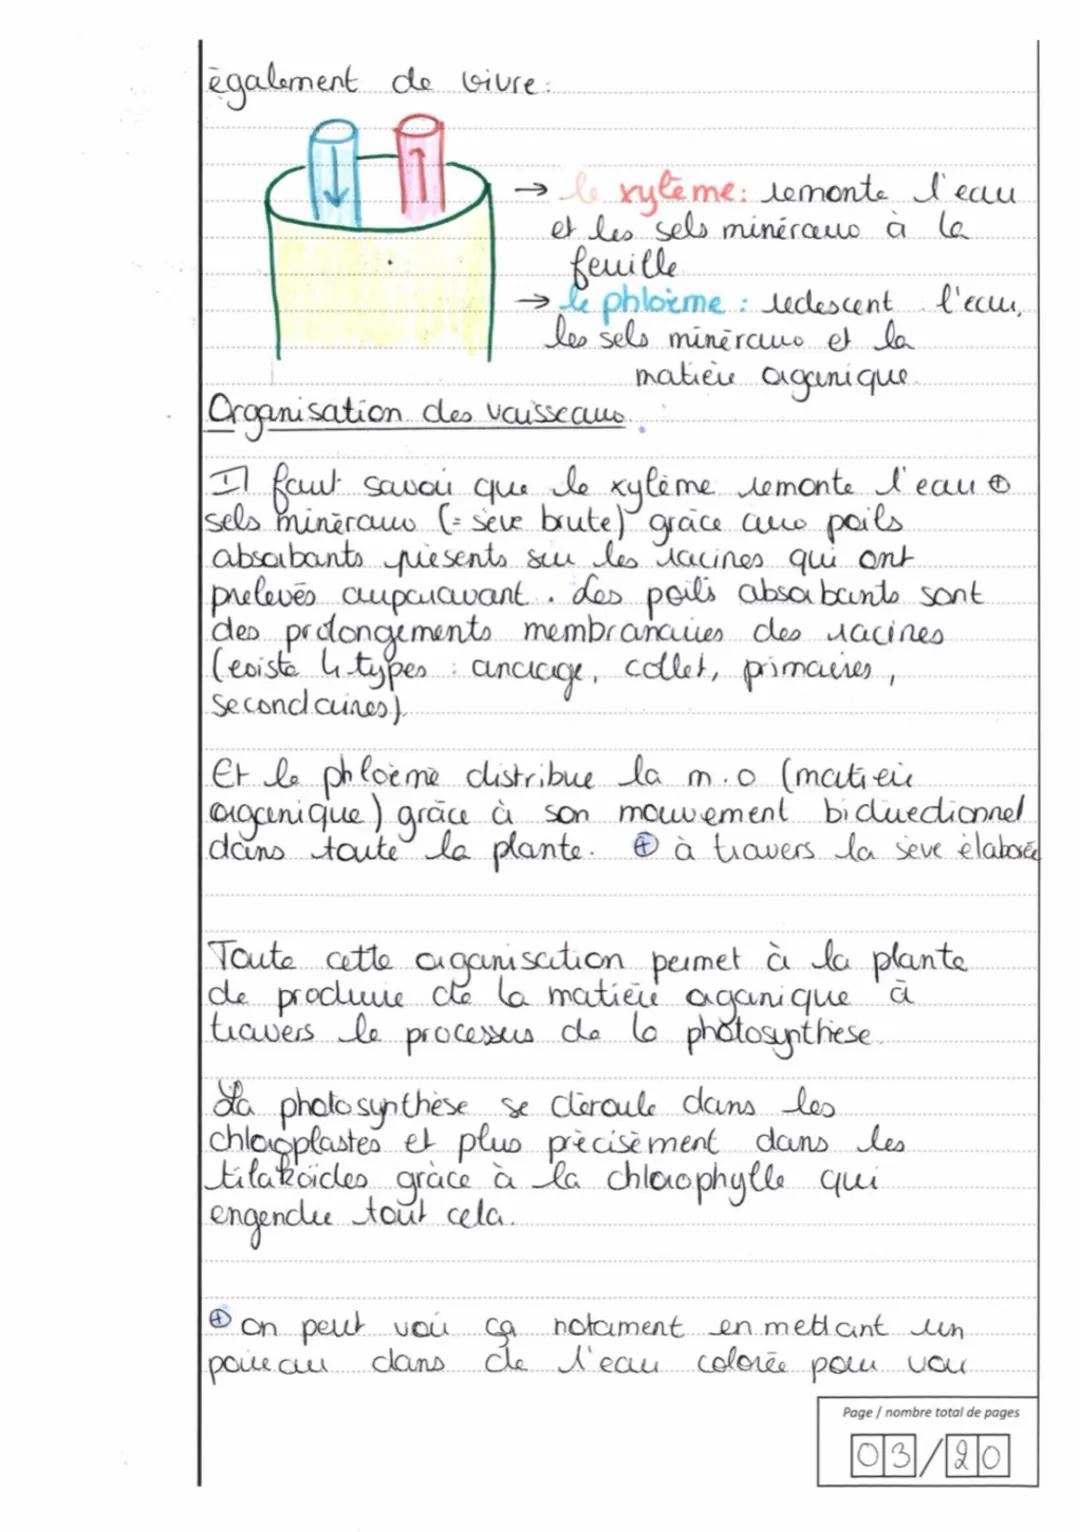 également de vivre :
→ le xylème : remonte l'eau
et les sels minéraux à la
feuille
→ le phloème : redescent l'eau,
les sels minéraux et la
matière organique.
Organisation des vaisseaux.
Il faut savoir que le xylème remonte l'eau ⊕
sels minéraux (= sève brute) grâce aux poils
absorbants présents sur les racines qui ont
prelevés auparavant. Les poils absorbants sont
des prolongements membranaires des racines
(existe 4 types : ancrage, collet, primaires,
secondaires).
Et le phloème distribue la m.o (matière
organique) grâce à son mouvement bidirectionnel
dans toute la plante. ⊕ à travers la sève élaborée
Toute cette organisation permet à la plante
de produire de la matière organique à
travers le processus de la photosynthèse.
La photosynthèse se déroule dans les
chloroplastes et plus précisément dans les
tilakoïdes grâce à la chlorophylle qui
engendre tout cela.
⊕ on peut voir ça notament en mettant un
poireau dans de l'eau colorée pour voir
Page / nombre total de pages
03/20